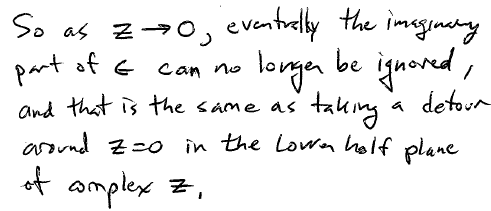 So as z → 0, eventually the imaginary
part of ϵ can no longer be ignored,
and that is the same as taking a detour
around z=0 in the lower half plane
of complex z.